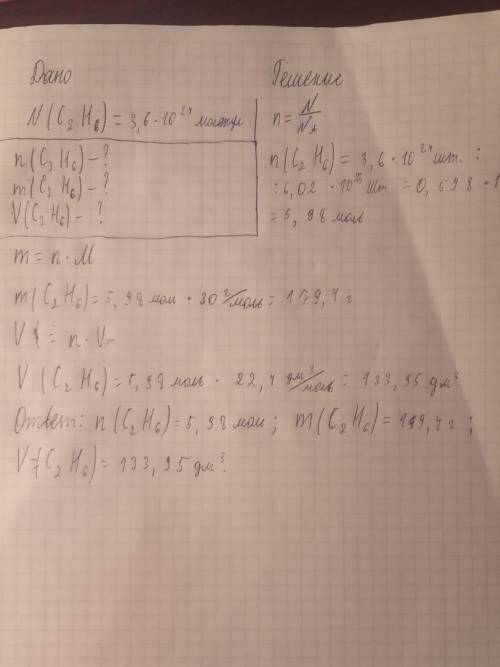 Дано
Решение
N(C₂H₆) = 3,6·10²⁴ молекул
n = N/Nₐ
n(C₂H₆) - ?
m(C₂H₆) - ?
V(C₂H₆) - ?
n(C₂H₆) = 3,6·10²⁴ шт. :
: 6,02 · 10²³ шт = 0,598 ·
= 5,98 моль
m = n · M
m(C₂H₆) = 5,98 мол · 30 г/моль = 179,4 г
V = n · Vₘ
V (C₂H₆) = 5,98 моль · 22,4 дм³/моль = 133,95 дм³
Ответ: n(C₂H₆) = 5,98 мол; m(C₂H₆) = 179,4 г;
V(C₂H₆) = 133,95 дм³.